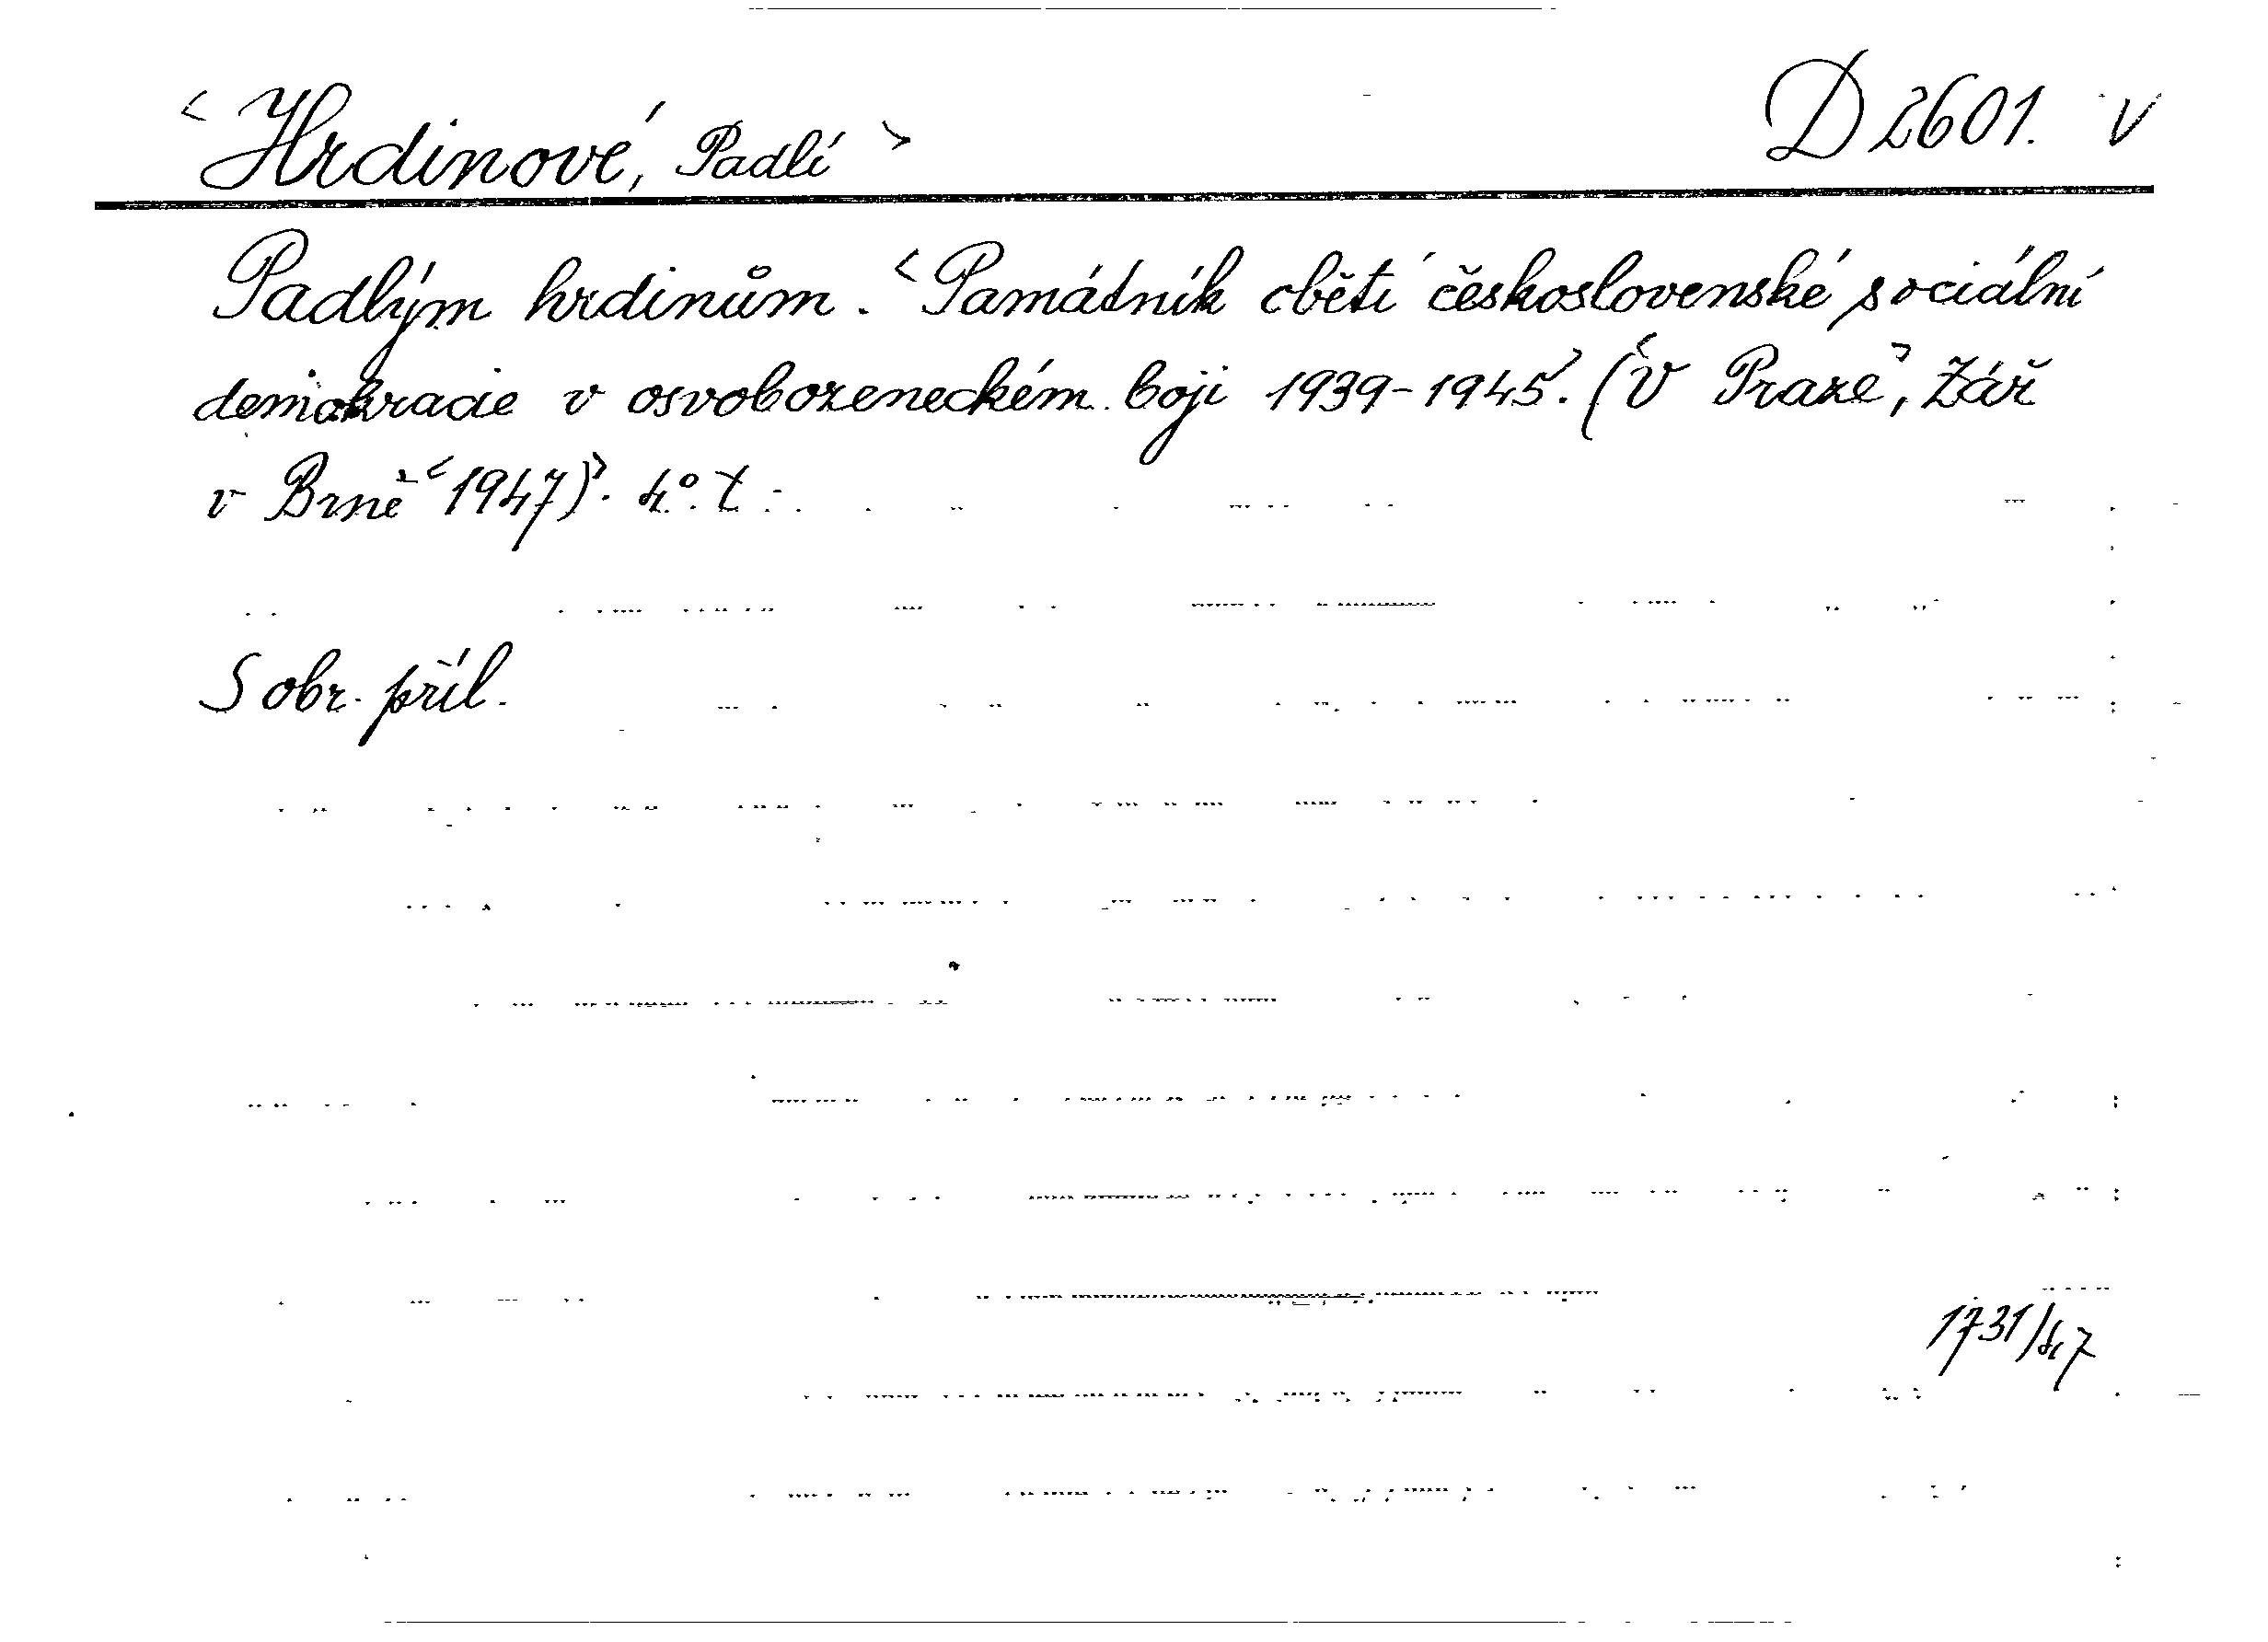 < Hrdinové, Padlí > D 2601. V
Padlým hrdinům. < Památník obětí československé sociální
demokracie v osvobozeneckém boji 1939-1945.> (< V Praze >, Zář
v Brně < 1947)>. 4°. t.
S obr. příl.
1731/47